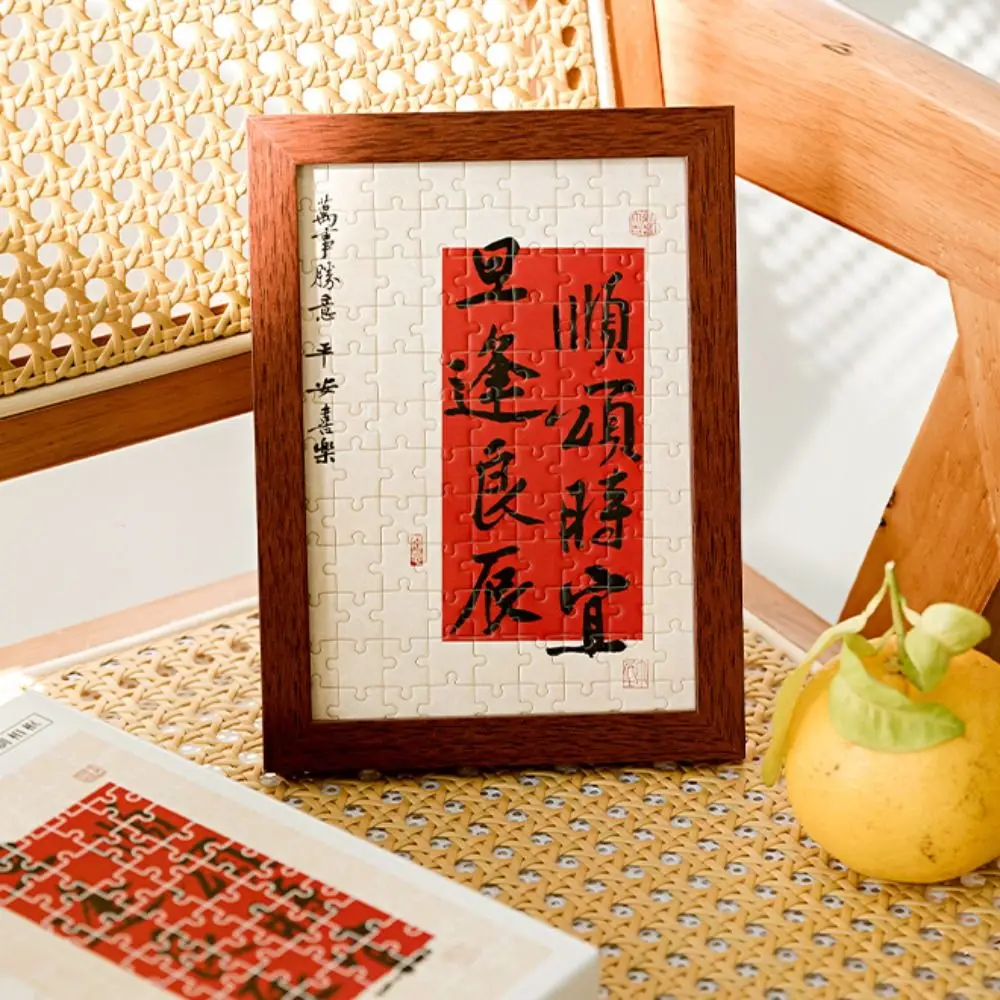 順頌時宜
旦逢良辰
萬事勝意 平安喜樂